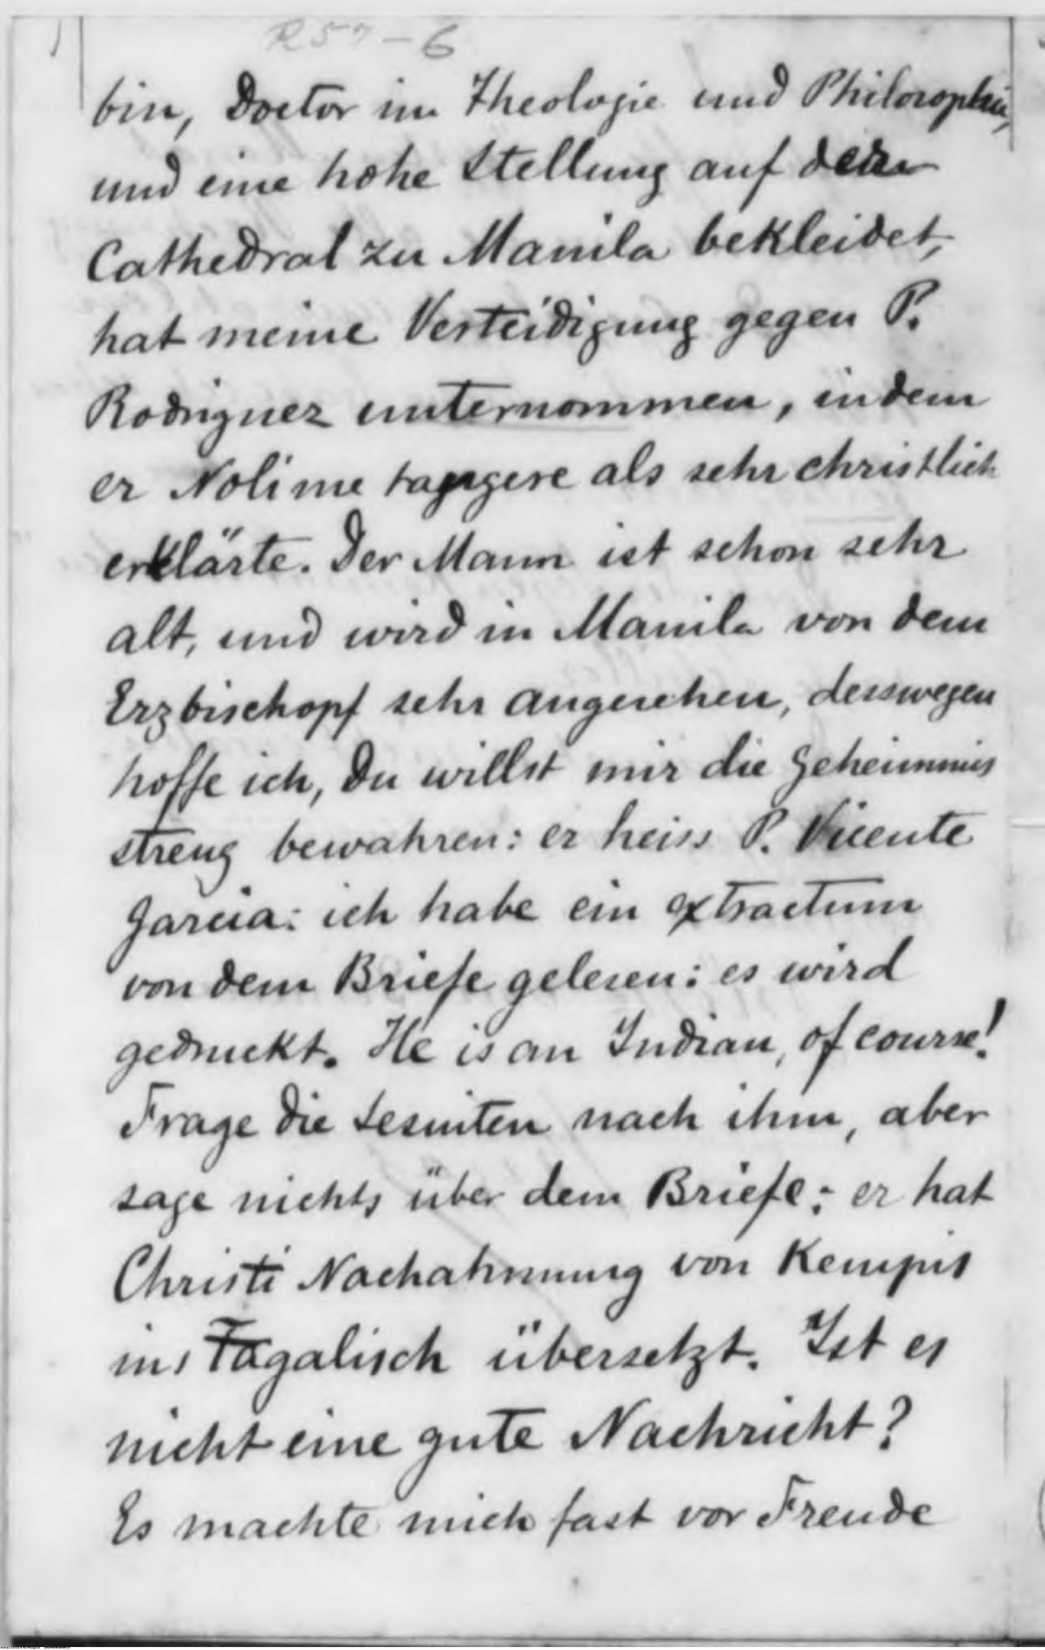 R57-6
bin, Doctor im Theologie und Philosophie,
und eine hohe Stellung auf der
Cathedral zu Manila bekleidet,
hat meine Verteidigung gegen P.
Rodriguez unternommen, indem
er Noli me tangere als sehr christlich
erklärte. Der Mann ist schon sehr
alt, und wird in Manila von dem
Erzbischopf sehr angesehen, desswegen
hoffe ich, Du willst mir die Geheimnis
streng bewahren: er heiss P. Vicente
Garcia: ich habe ein extractum
von dem Briefe gelesen: es wird
gedruckt. He is an Indian, of course!
Frage die Jesuiten nach ihm, aber
sage nichts über dem Briefe; er hat
Christi Nachahmung von Kempis
ins Tagalisch übersetzt. Ist es
nicht eine gute Nachricht?
Es machte mich fast vor Freude